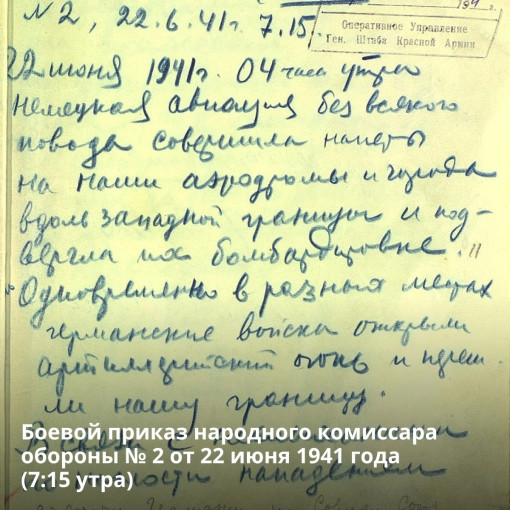 № 2, 22.6.41г. 7.15.
194 г.
Оперативное Управление
Ген. Штаба Красной Армии
22 июня 1941г. 04 часа утра
немецкая авиация без всякого
повода совершила налеты
на наши аэродромы и города
вдоль западной границы и под-
вергла их бомбардировке.
Одновременно в разных местах
германские войска открыли
артиллерийский огонь и переш-
ли нашу границу.
В связи с
нападением
Боевой приказ народного комиссара
обороны № 2 от 22 июня 1941 года
(7:15 утра)